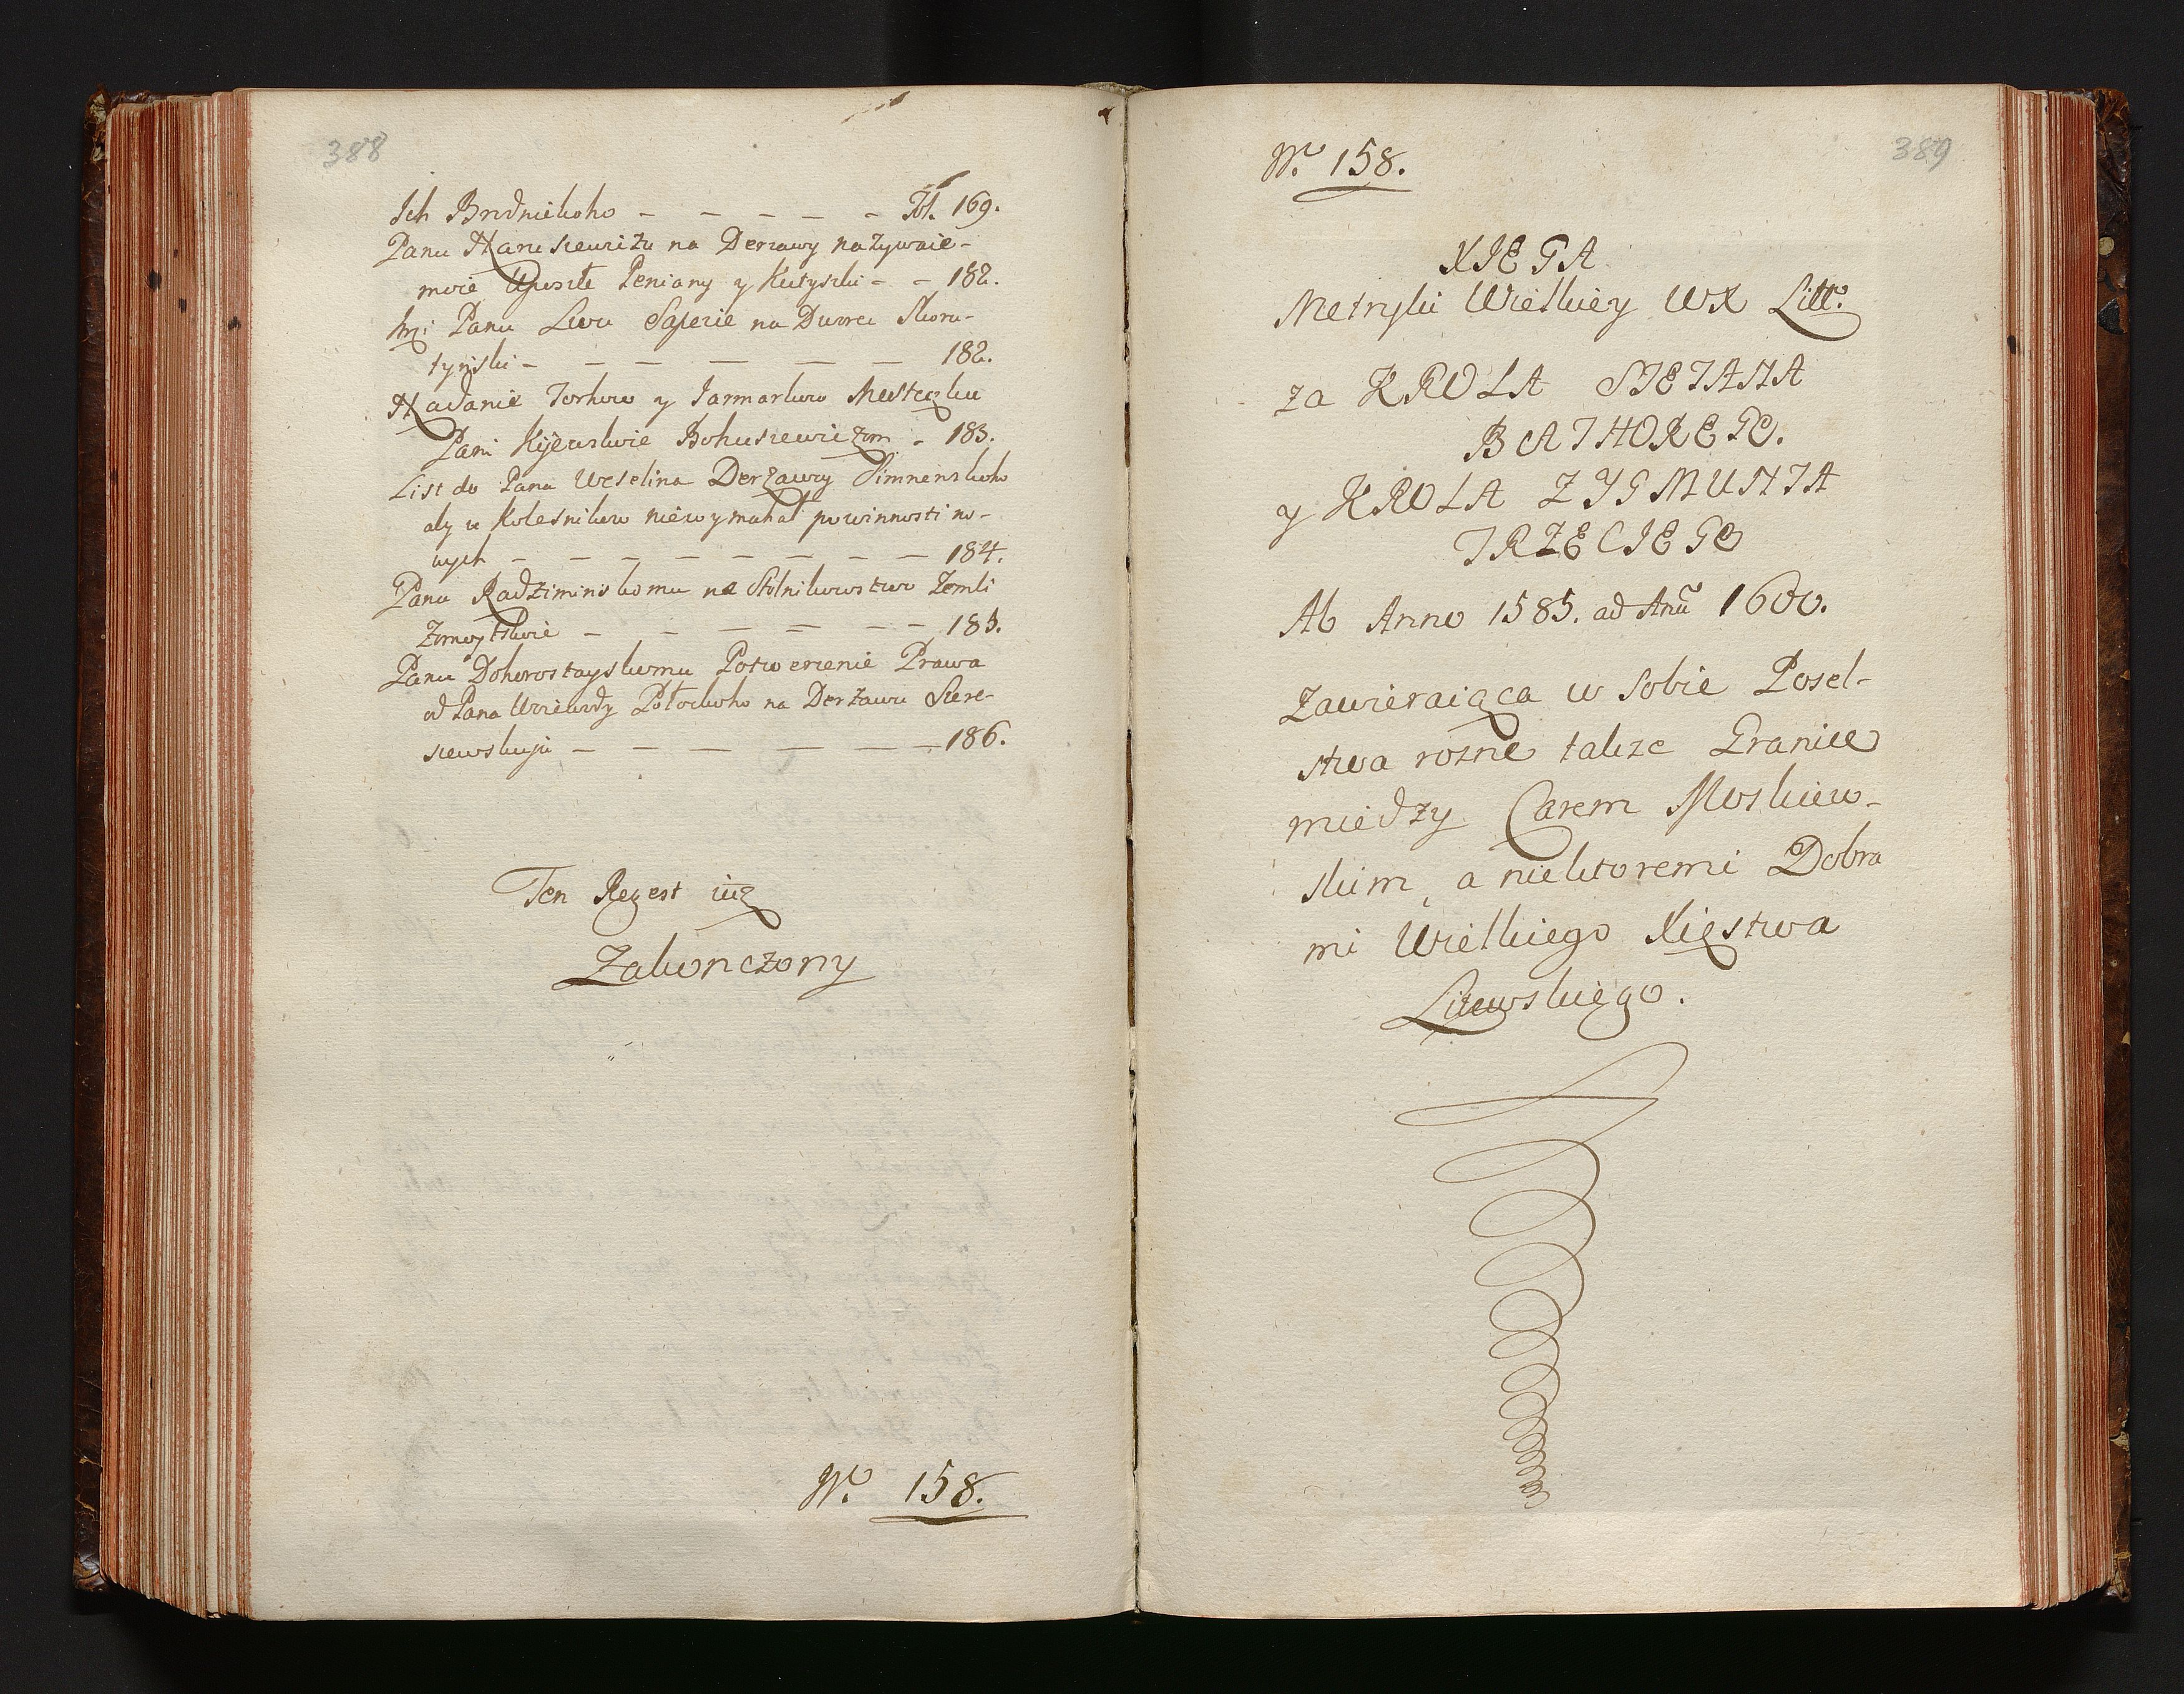 388
Ich Brudnickoho – – – – – Fol. 169.
Panu Harusewiżu na Derzawy na żywocie-
moie Uposzte Peniany y Kutyszki - - 182.
Panu Lwu Sapezie na Dworec Skoru-
tyński – – – – – – 182.
Nadanie Torhow y Jarmarkow Mesteczku
Pani Kijewskoie Bohusiewiczom - 183.
List do Pana Weselina Derżawcy Simnenskoho
aby u Kolesnikow nie wymahał powinnosti no-
wych – – – – – – – – 184.
Panu Radziminskomu na Stolnikowstwo Zemli
Zmoytskoie – – – – – – 185.
Panu Dohorostayskomu Potwerżenie Prawa
od Pana Woiewody Połockoho na Derżawu Szere-
szewskuju – – – – – – 186.
Ten Regest iuż
Zakonczony
N.o 158.
389
N.o 158.
XIEGA
Metryki Wielkiey WX Litt.o
za KROLA STEFANA
BATHOREGO.
y KROLA ZYGMUNTA
TRZECIEGO
Ab Anno 1585. ad Anũ 1600.
Zawieraiąca w Sobie Posel-
stwa rozne takze Granice
miedzy Carem Moskiew-
skim, a niektoremi Dobra
mi Wielkiego Xięstwa
Litewskiego.